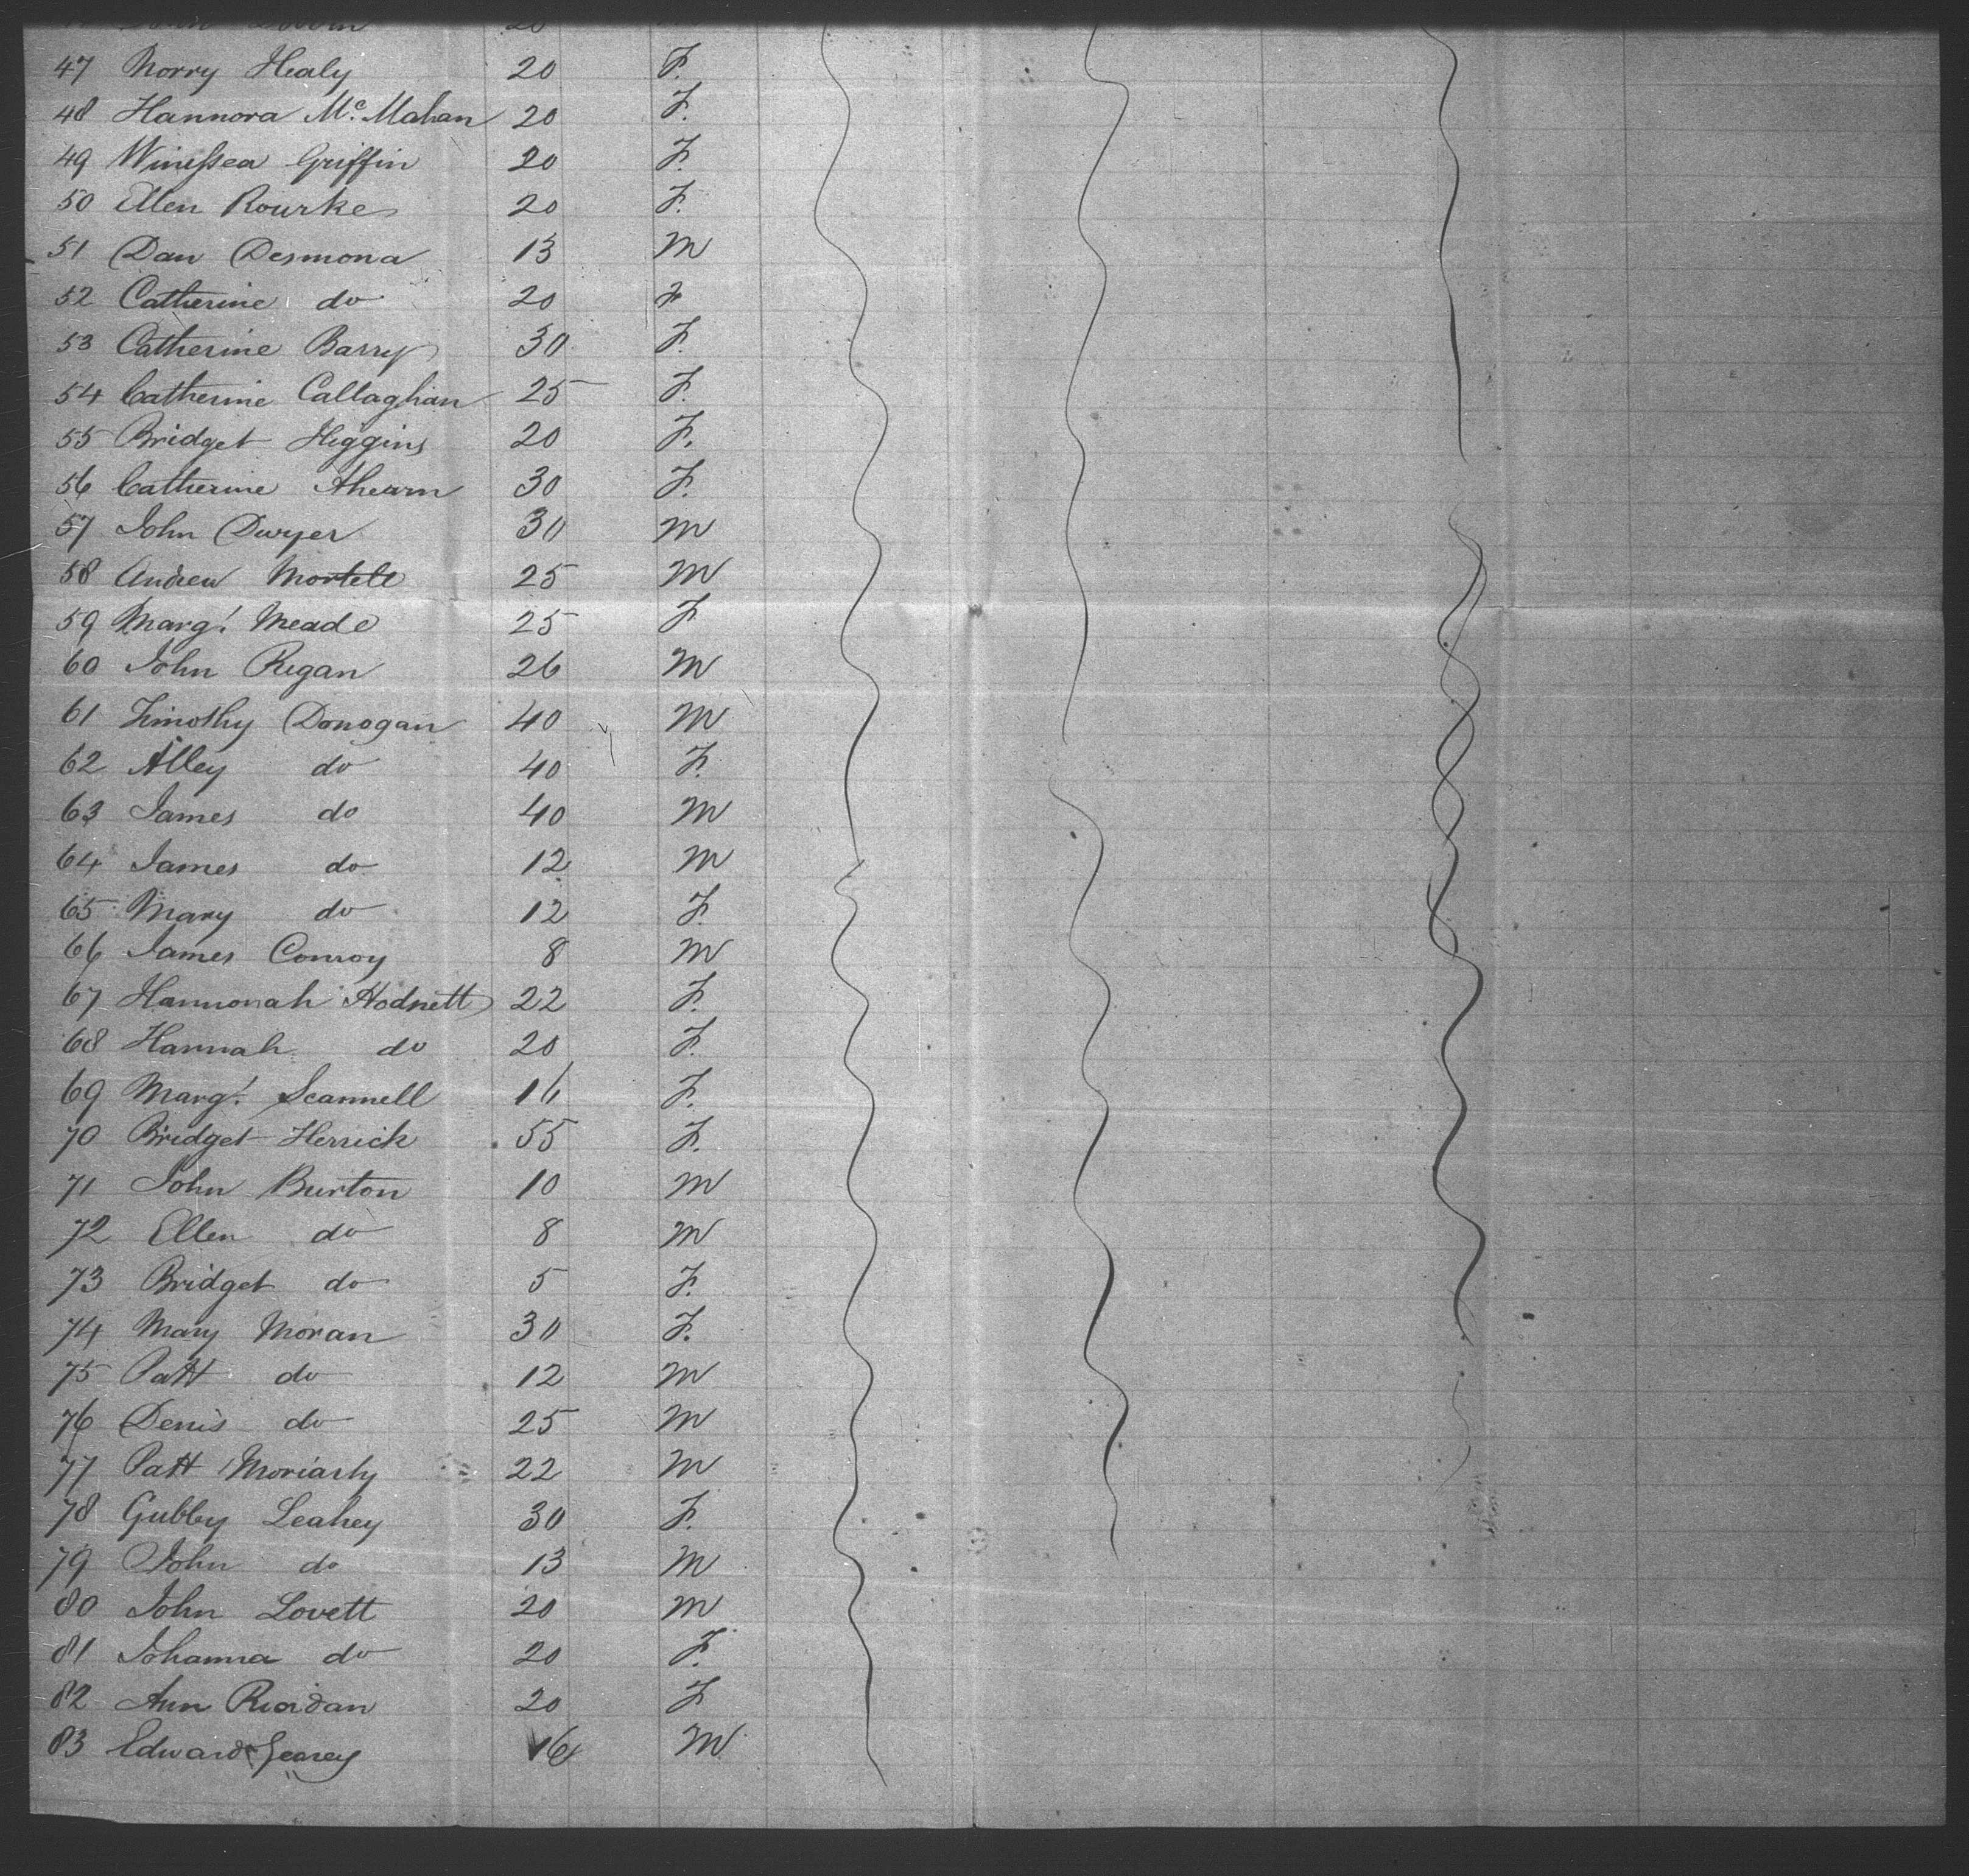 47 Norry Healy 20 F.
48 Hannora Mc. Mahan 20 F.
49 Winessea Griffin 20 F.
50 Ellen Rourke 20 F.
51 Dan Desmond 13 M
52 Catherine do 20 F
53 Catherine Barry 30 F.
54 Catherine Callaghan 25 F.
55 Bridget Higgins 20 F.
56 Catherine Ahearn 30 F.
57 John Dwyer 30 M
58 Andrew Mortell 25 M
59 Margt. Meade 25 F
60 John Regan 26 M
61 Timothy Donogan 40 M
62 Alley do 40 F.
63 James do 40 M
64 James do 12 M
65 Mary do 12 F.
66 James Conroy 8 M
67 Hannonah Hodnett 22 F.
68 Hannah do 20 F.
69 Margt. Scannell 16 F.
70 Bridget Herrick 55 F.
71 John Burton 10 M
72 Ellen do 8 M
73 Bridget do 5 F.
74 Mary Moran 30 F.
75 Patt do 12 M
76 Denis do 25 M
77 Patt Moriarty 22 M
78 Gubby Leahey 30 F.
79 John do 13 M
80 John Lovett 20 M
81 Johanna do 20 F.
82 Ann Riordan 20 F
83 Edward Gearey 16 M